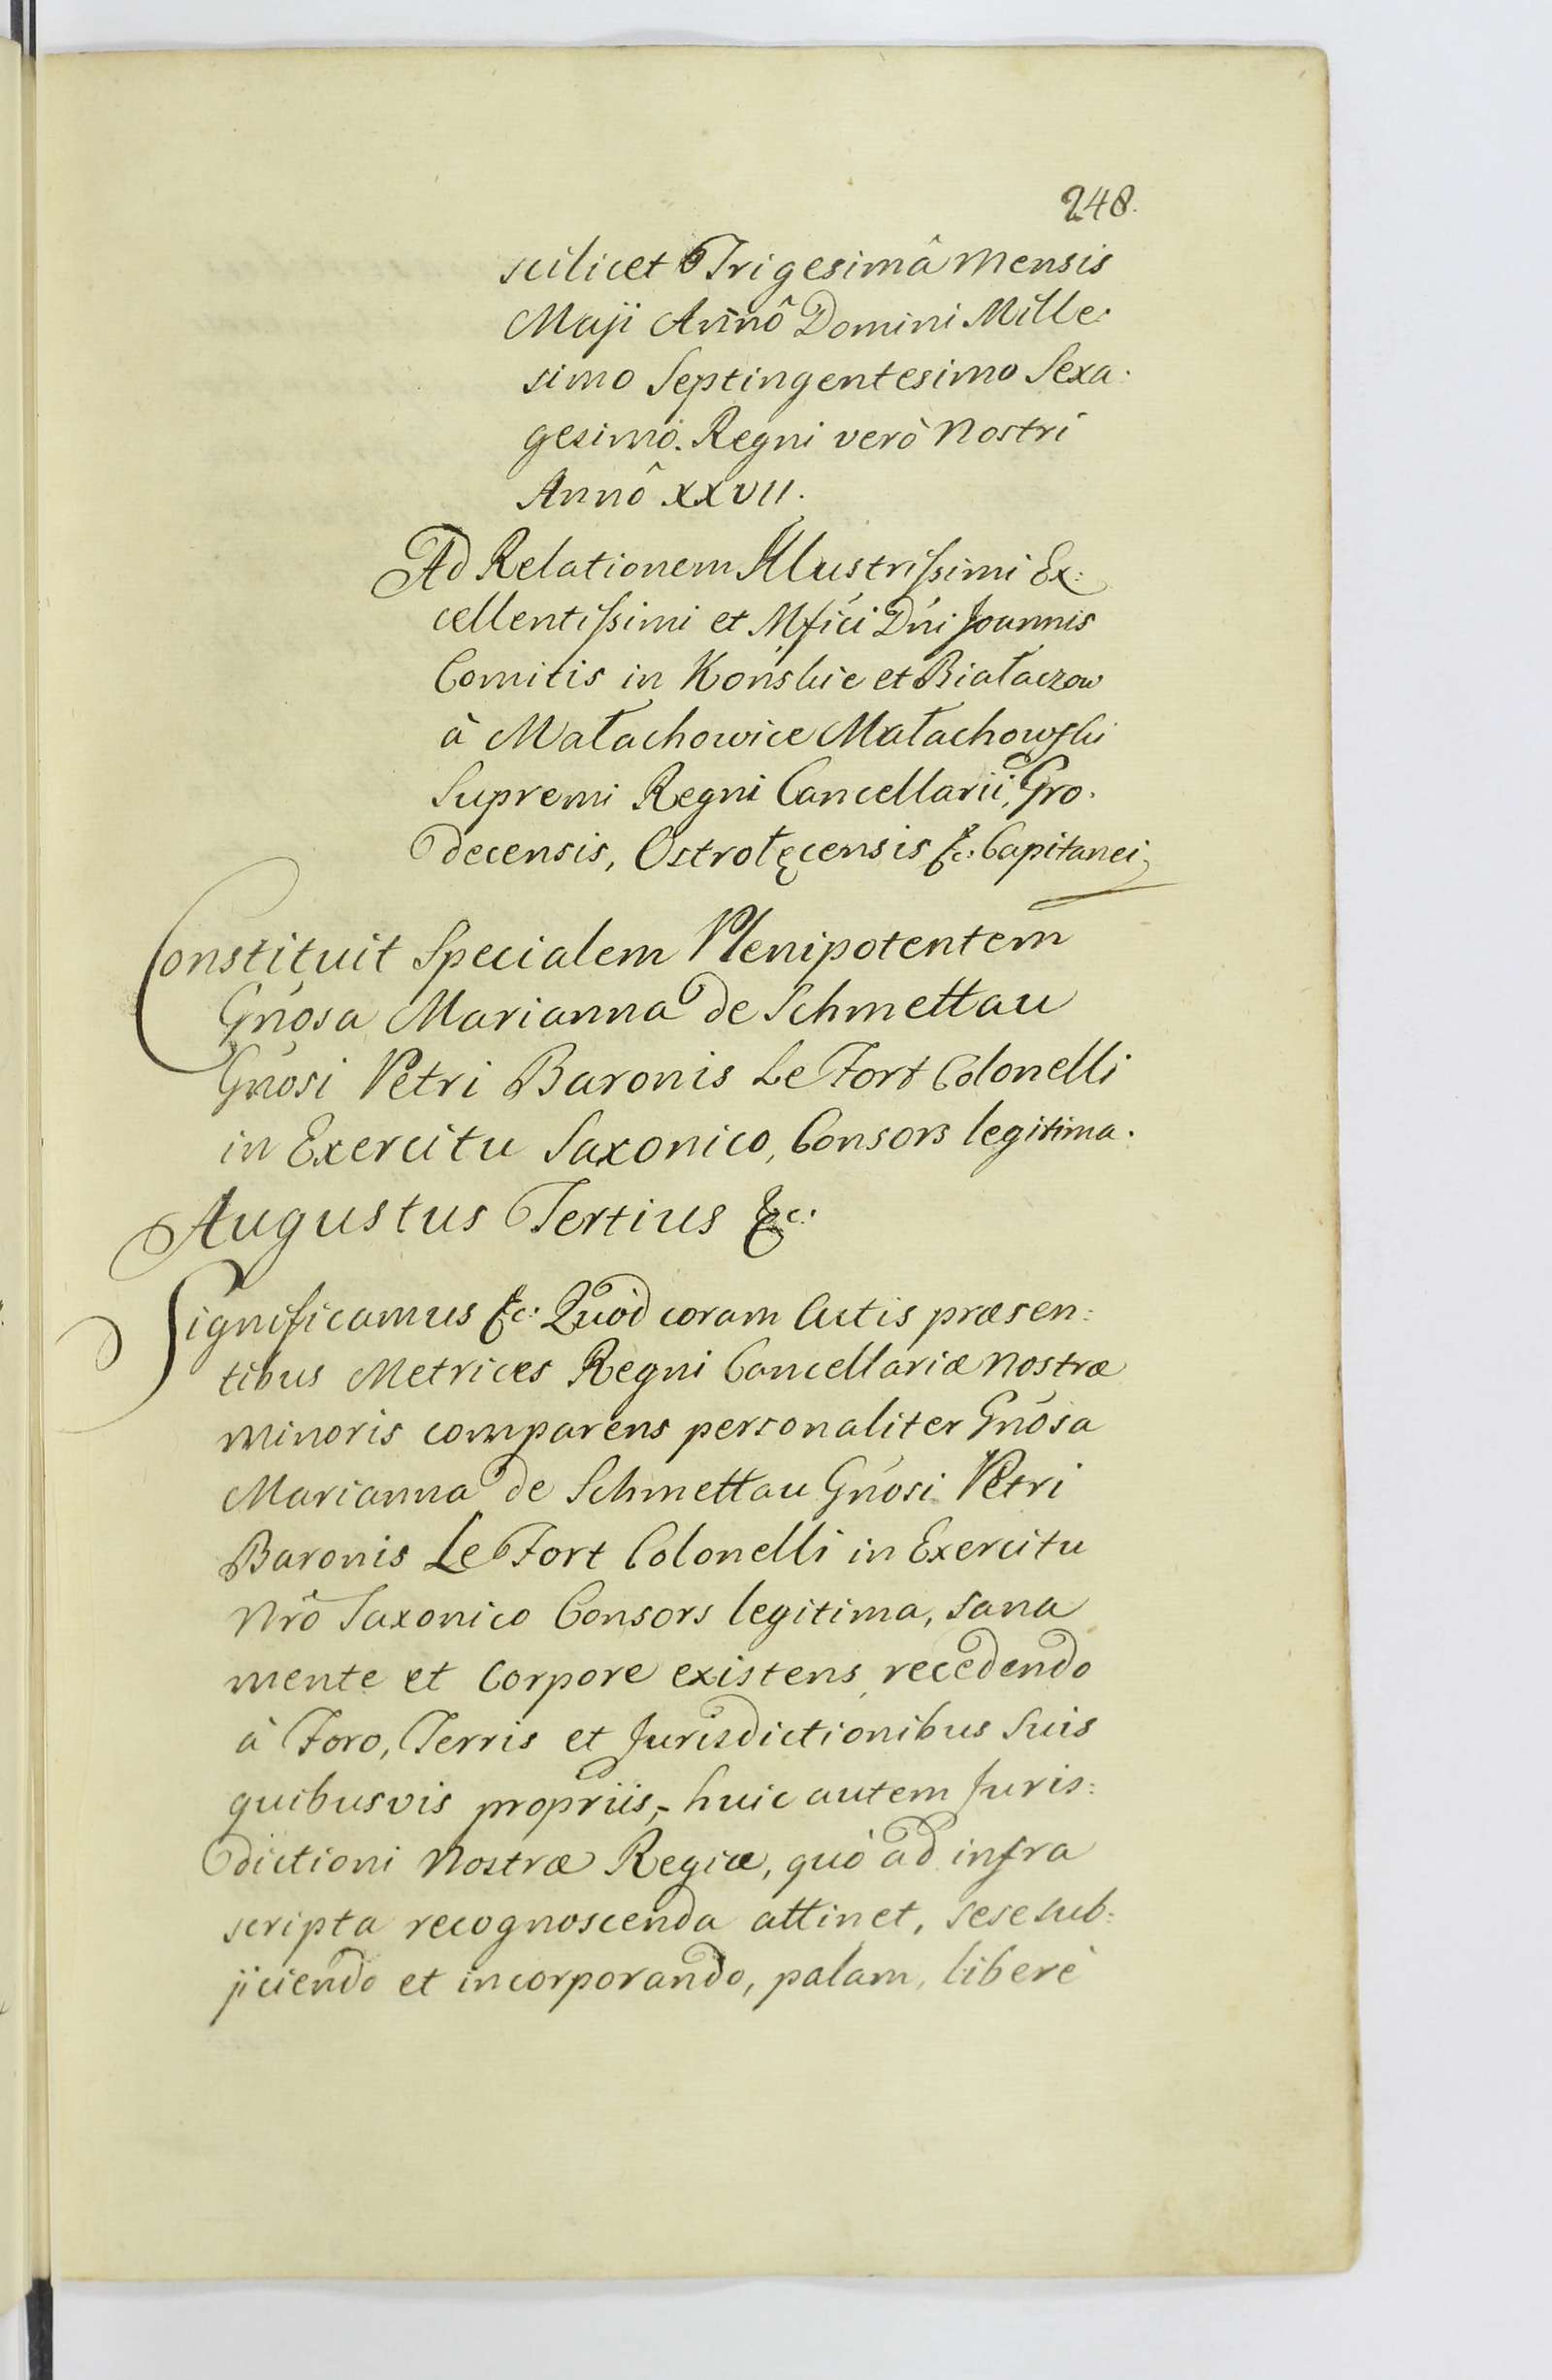 248.
scilicet Trigesimâ Mensis
Maji Annô Domini Mille:
simo Septingentesimo Sexa:
gesimo. Regni verò Nostri
Annô XXVII.
Ad Relationem Illustrissimi Ex:
cellentissimi et Mfici Dni Joannis
Comitis in Końskie et Białaczow
à Małachowice Małachowski
Supremi Regni Cancellarii, Gro:
decensis, Ostrołęcensis &c: Capitanei
Constituit Specialem Plenipotentem
Gnosa Marianna de Schmettau
Gnosi Petri Baronis Le Fort Colonelli
in Exercitu Saxonico, Consors legitima.
Augustus Tertius &c:
Significamus &c: Quòd coram Actis præsen:
tibus Metrices Regni Cancellariæ Nostræ
Minoris comparens personaliter Gnosa
Marianna de Schmettau Gnosi Petri
Baronis Le Fort Colonelli in Exercitu
Nrô Saxonico Consors legitima, sana
mente et Corpore existens, recedendo
à Foro, Terris et Jurisdictionibus Suis
quibusvis propriis, huic autem Juris:
dictioni Nostræ Regiæ, quò ad infra
scripta recognoscenda attinet, sese sub:
jiciendo et incorporando, palam, liberè